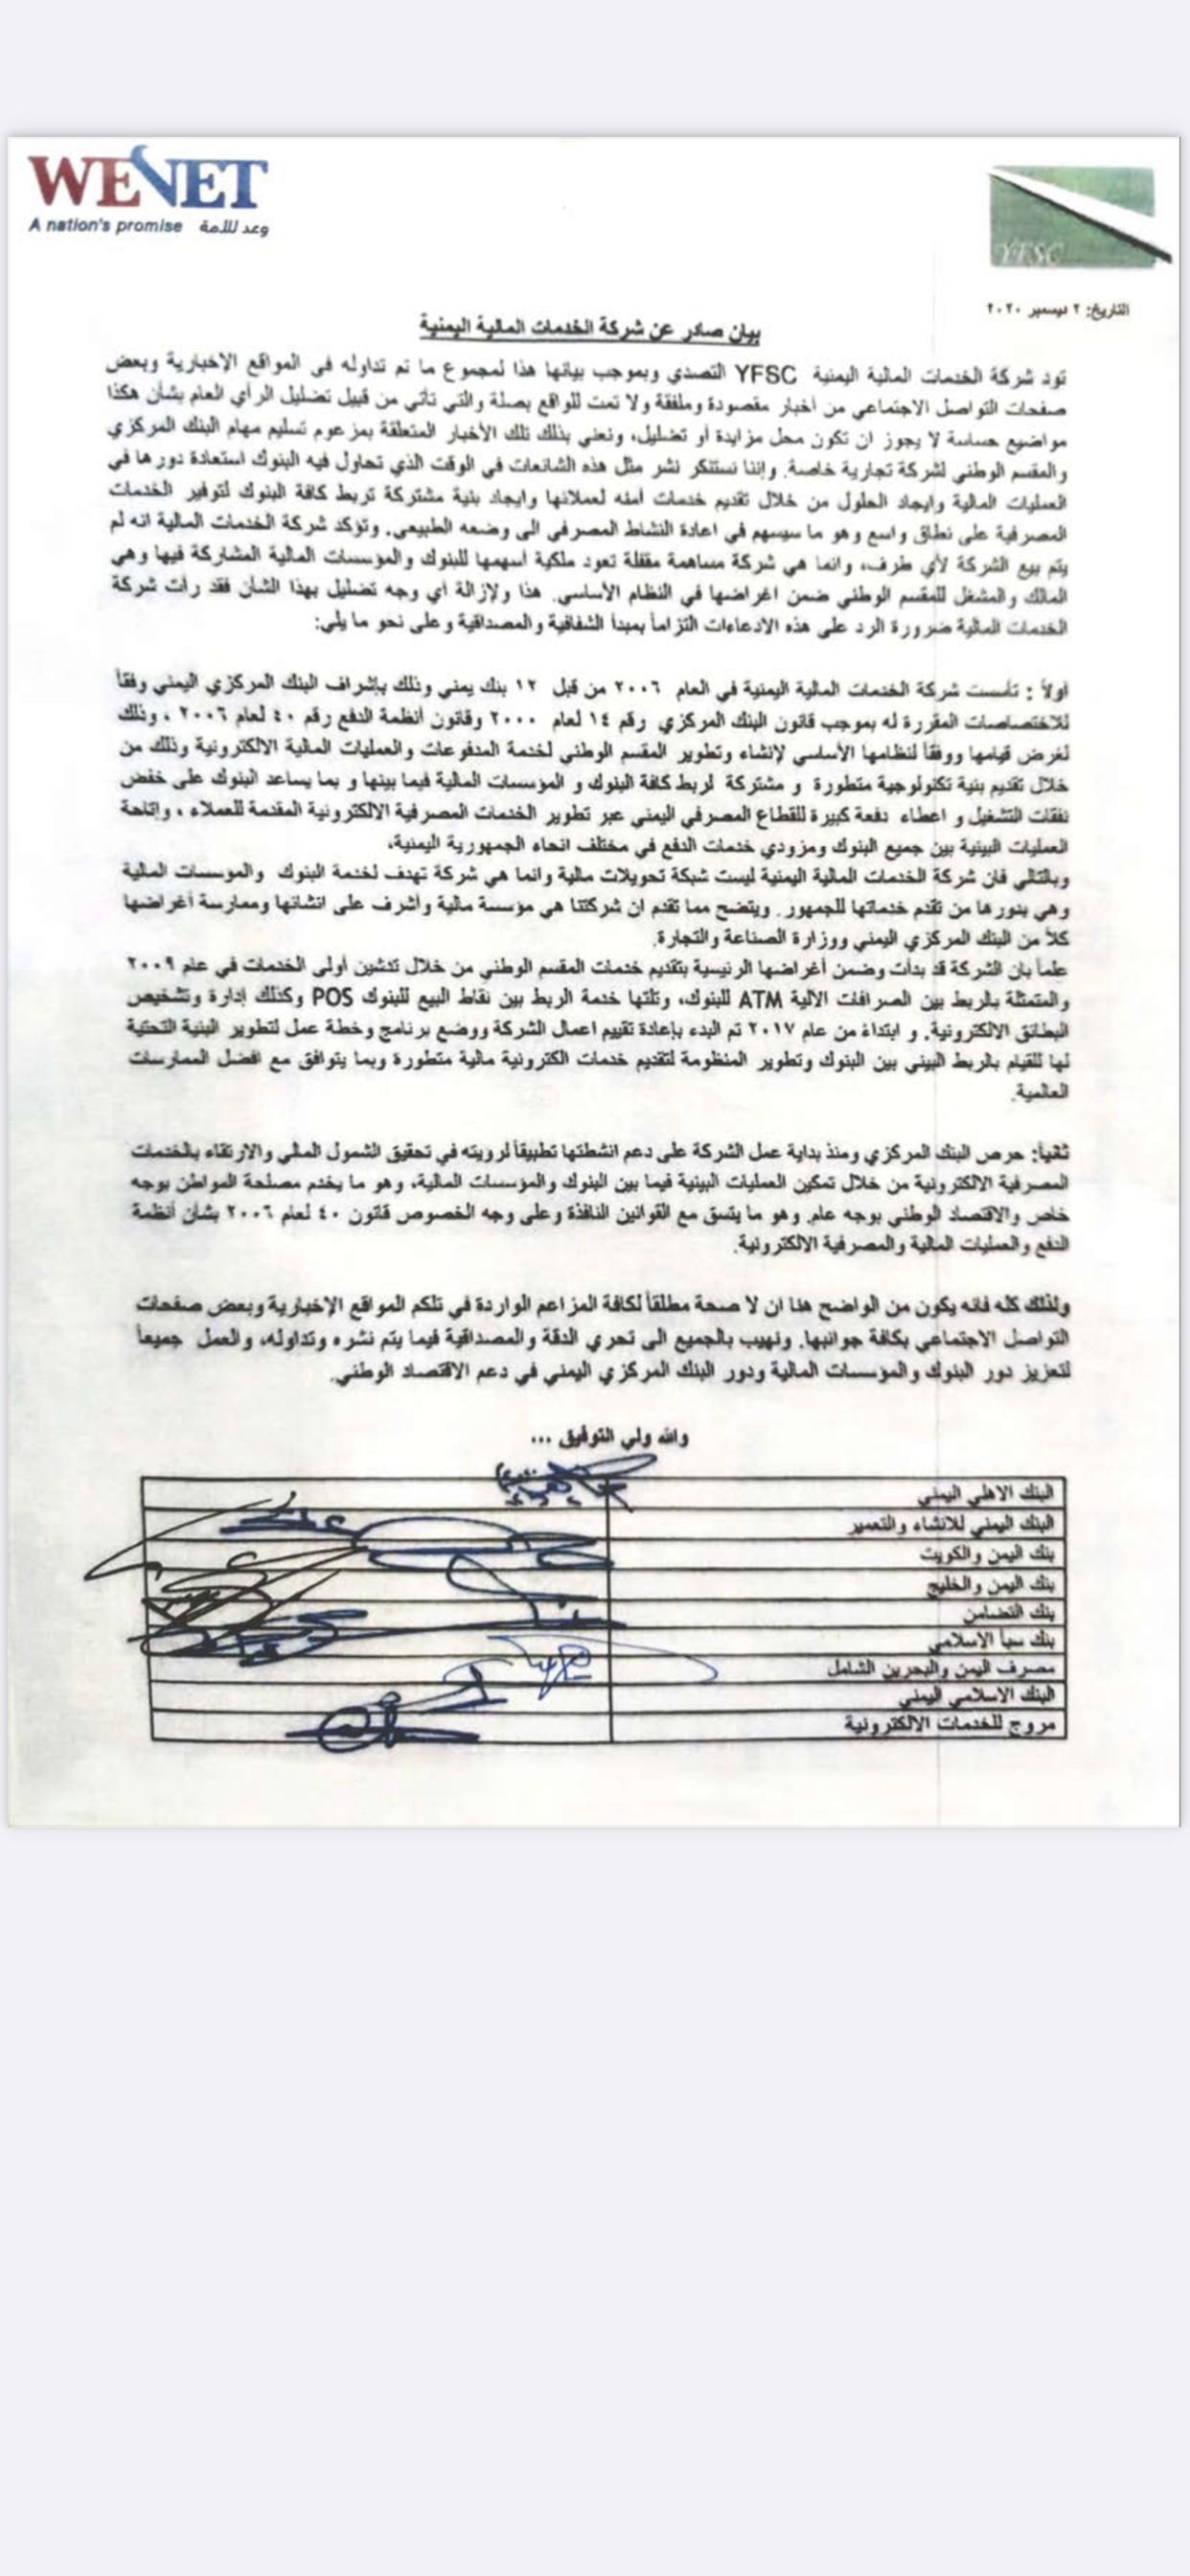 WENET
A nation's promise وعد للأمة
YFSC
التاريخ: ٢ ديسمبر ٢٠٢٠
بيان صادر عن شركة الخدمات المالية اليمنية
تود شركة الخدمات المالية اليمنية YFSC التصدي وبموجب بيانها هذا لمجموع ما تم تداوله في المواقع الإخبارية وبعض
صفحات التواصل الاجتماعي من أخبار مقصودة وملفقة ولا تمت للواقع بصلة والتي تأتي من قبيل تضليل الرأي العام بشأن هكذا
مواضيع حساسة لا يجوز ان تكون محل مزايدة أو تضليل، ونعني بذلك تلك الأخبار المتعلقة بمزعوم تسليم مهام البنك المركزي
والمقسم الوطني لشركة تجارية خاصة. وإننا نستنكر نشر مثل هذه الشائعات في الوقت الذي تحاول فيه البنوك استعادة دورها في
العمليات المالية وايجاد الحلول من خلال تقديم خدمات أمنه لعملائها وايجاد بنية مشتركة تربط كافة البنوك لتوفير الخدمات
المصرفية على نطاق واسع وهو ما سيسهم في اعادة النشاط المصرفي الى وضعه الطبيعي. وتؤكد شركة الخدمات المالية انه لم
يتم بيع الشركة لأي طرف، وانما هي شركة مساهمة مقفلة تعود ملكية أسهمها للبنوك والمؤسسات المالية المشاركة فيها وهي
المالك والمشغل للمقسم الوطني ضمن اغراضها في النظام الأساسي. هذا ولإزالة أي وجه تضليل بهذا الشأن فقد رأت شركة
الخدمات المالية ضرورة الرد على هذه الادعاءات التزاماً بمبدأ الشفافية والمصداقية وعلى نحو ما يلي:
أولاً : تأسست شركة الخدمات المالية اليمنية في العام ٢٠٠٦ من قبل ١٢ بنك يمني وذلك بإشراف البنك المركزي اليمني وفقاً
للاختصاصات المقررة له بموجب قانون البنك المركزي رقم ١٤ لعام ٢٠٠٠ وقانون أنظمة الدفع رقم ٤٠ لعام ٢٠٠٦ ، وذلك
لغرض قيامها ووفقاً لنظامها الأساسي لإنشاء وتطوير المقسم الوطني لخدمة المدفوعات والعمليات المالية الالكترونية وذلك من
خلال تقديم بنية تكنولوجية متطورة و مشتركة لربط كافة البنوك و المؤسسات المالية فيما بينها و بما يساعد البنوك على خفض
نفقات التشغيل و اعطاء دفعة كبيرة للقطاع المصرفي اليمني عبر تطوير الخدمات المصرفية الالكترونية المقدمة للعملاء ، وإتاحة
العمليات البينية بين جميع البنوك ومزودي خدمات الدفع في مختلف انحاء الجمهورية اليمنية،
وبالتالي فان شركة الخدمات المالية اليمنية ليست شبكة تحويلات مالية وانما هي شركة تهدف لخدمة البنوك والمؤسسات المالية
وهي بدورها من تقدم خدماتها للجمهور. ويتضح مما تقدم ان شركتنا هي مؤسسة مالية وأشرف على انشائها وممارسة أغراضها
كلاً من البنك المركزي اليمني ووزارة الصناعة والتجارة.
علماً بان الشركة قد بدأت وضمن أغراضها الرئيسية بتقديم خدمات المقسم الوطني من خلال تدشين أولى الخدمات في عام ٢٠٠٩
والمتمثلة بالربط بين الصرافات الآلية ATM للبنوك، وتلتها خدمة الربط بين نقاط البيع للبنوك POS وكذلك إدارة وتشخيص
البطائق الالكترونية. و ابتداءً من عام ٢٠١٧ تم البدء بإعادة تقييم اعمال الشركة ووضع برنامج وخطة عمل لتطوير البنية التحتية
لها للقيام بالربط البيني بين البنوك وتطوير المنظومة لتقديم خدمات الكترونية مالية متطورة وبما يتوافق مع افضل الممارسات
العالمية.
ثانياً: حرص البنك المركزي ومنذ بداية عمل الشركة على دعم انشطتها تطبيقاً لرويته في تحقيق الشمول المالي والارتقاء بالخدمات
المصرفية الالكترونية من خلال تمكين العمليات البينية فيما بين البنوك والمؤسسات المالية، وهو ما يخدم مصلحة المواطن بوجه
خاص والاقتصاد الوطني بوجه عام. وهو ما يتسق مع القوانين النافذة وعلى وجه الخصوص قانون ٤٠ لعام ٢٠٠٦ بشأن أنظمة
الدفع والعمليات المالية والمصرفية الالكترونية.
ولذلك كله فانه يكون من الواضح هنا ان لا صحة مطلقاً لكافة المزاعم الواردة في تلكم المواقع الإخبارية وبعض صفحات
التواصل الاجتماعي بكافة جوانبها. ونهيب بالجميع الى تحري الدقة والمصداقية فيما يتم نشره وتداوله، والعمل جميعاً
لتعزيز دور البنوك والمؤسسات المالية ودور البنك المركزي اليمني في دعم الاقتصاد الوطني.
والله ولي التوفيق ...
البنك الاهلي اليمني
البنك اليمني للانشاء والتعمير
بنك اليمن والكويت
بنك اليمن والخليج
بنك التضامن
بنك سبأ الاسلامي
مصرف اليمن والبحرين الشامل
البنك الاسلامي اليمني
مروج للخدمات الالكترونية